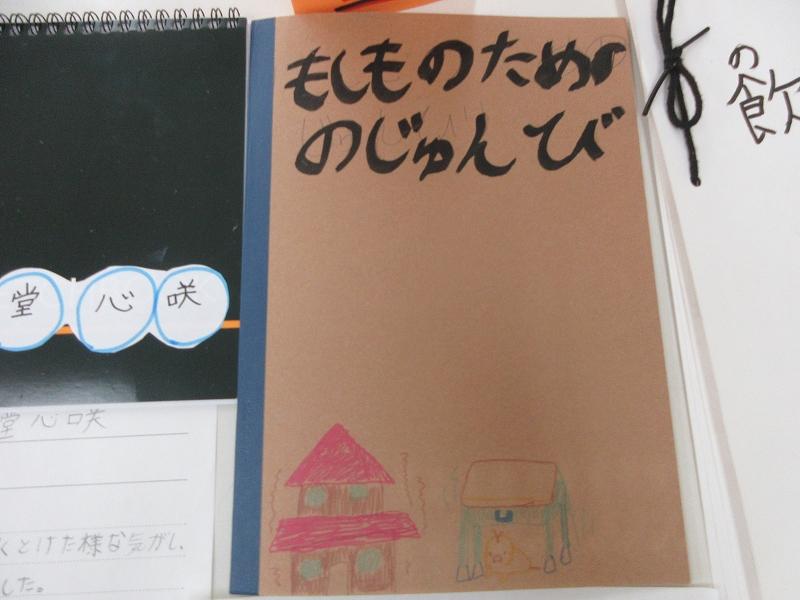 もしものため
のじゅんび
堂心咲
堂心咲
くとけた様な気がし、
した。
の
飲